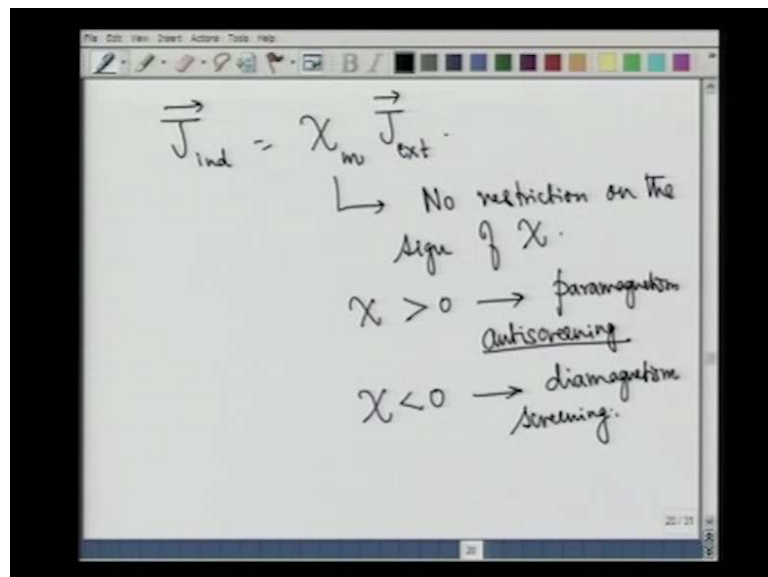 File Edit View Insert Actions Tools Help
B I
J⃗ind = χm J⃗ext.
No restriction on the
sign of χ.
χ > 0 → paramagnetism
antiscreening
χ < 0 → diamagnetism
screening.
20 / 31
20